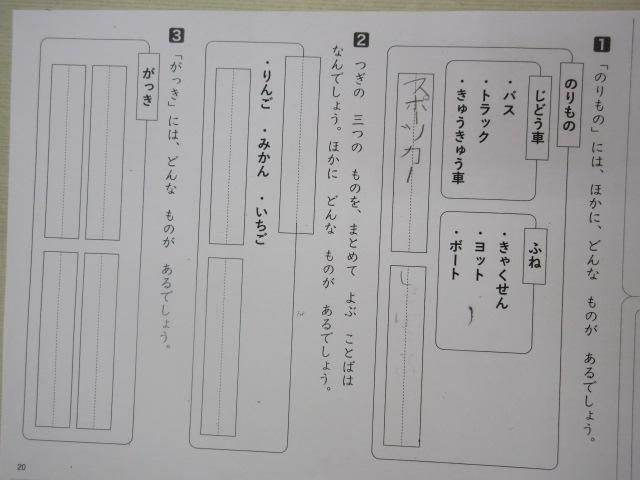 1 「のりもの」には、ほかに、どんな ものが あるでしょう。
のりもの
じどう車
・バス
・トラック
・きゅうきゅう車
ふね
・きゃくせん
・ヨット
・ボート
スポーツカー
2 つぎの 三つの ものを、まとめて よぶ ことばは
なんでしょう。ほかに どんな ものが あるでしょう。
・りんご ・みかん ・いちご
3 「がっき」には、どんな ものが あるでしょう。
がっき
20